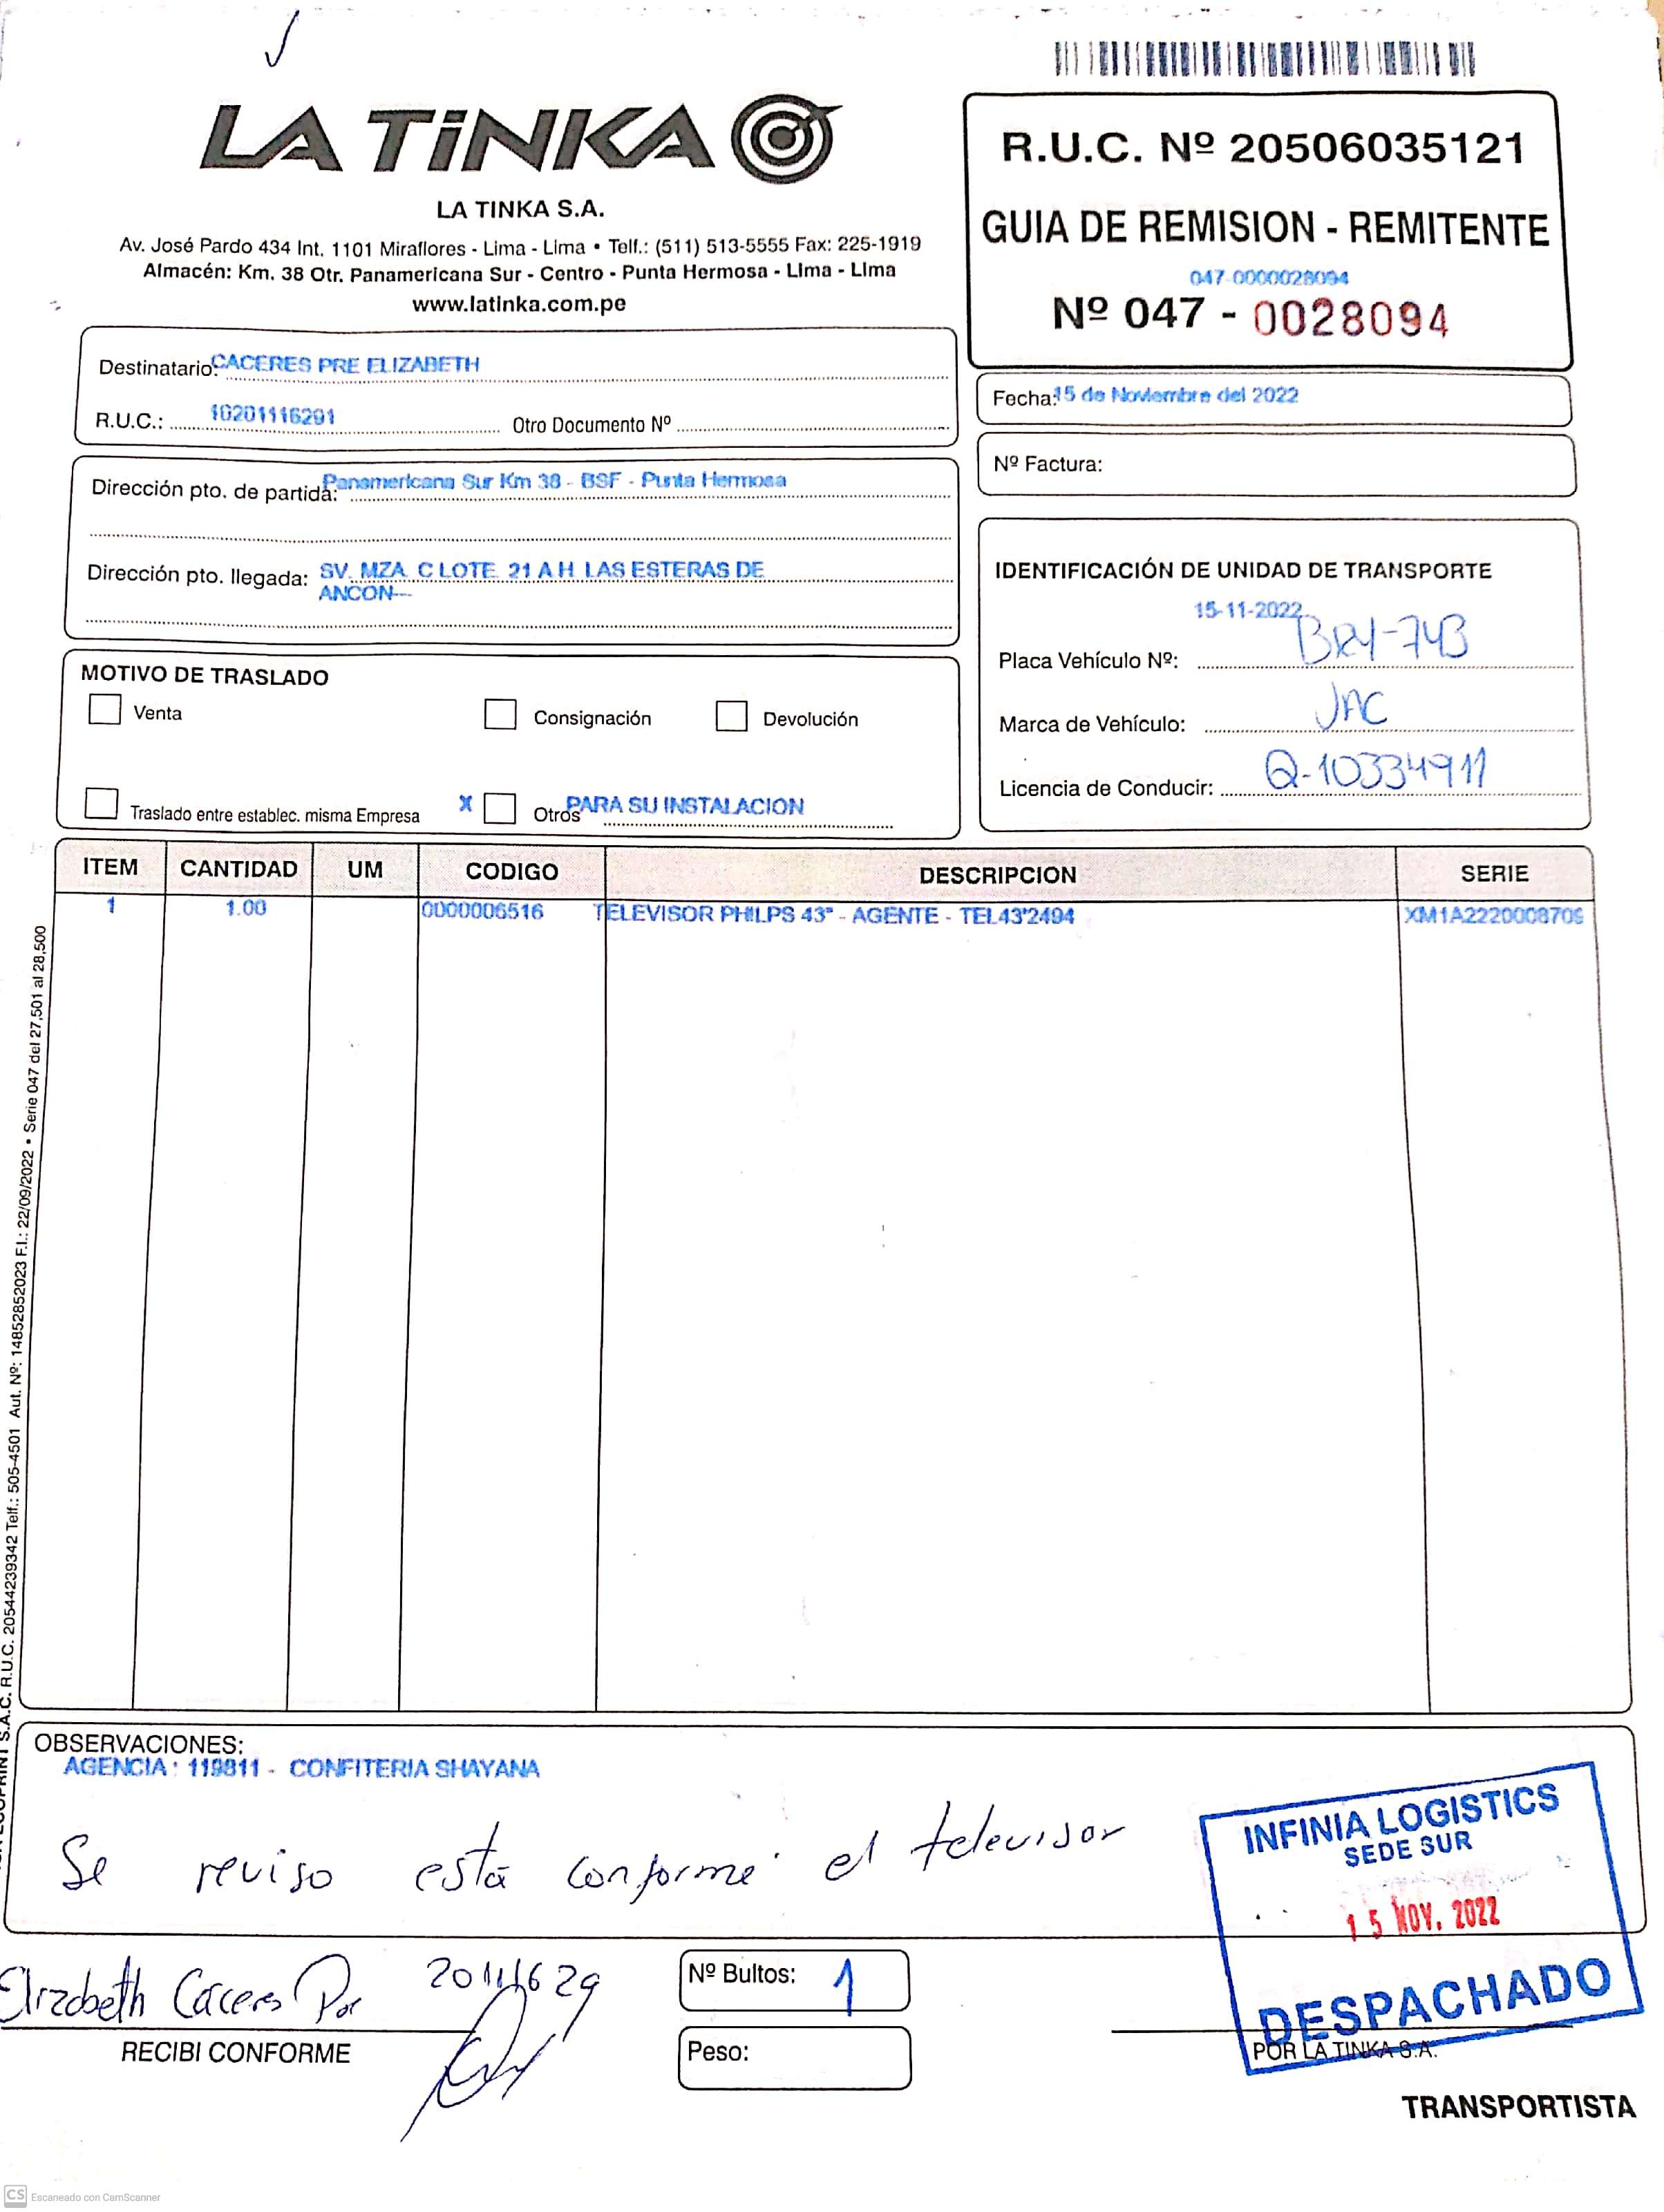 LA TiNKA
LA TINKA S.A.
Av. José Pardo 434 Int. 1101 Miraflores - Lima - Lima • Telf.: (511) 513-5555 Fax: 225-1919
Almacén: Km. 38 Otr. Panamericana Sur - Centro - Punta Hermosa - Lima - Lima
www.latinka.com.pe
R.U.C. Nº 20506035121
GUIA DE REMISION - REMITENTE
047-0000028094
Nº 047 - 0028094
Destinatario: CACERES PRE ELIZABETH
R.U.C.: 10201116291 Otro Documento Nº
Fecha: 15 de Noviembre del 2022
Nº Factura:
Dirección pto. de partida: Panamericana Sur Km 38 - BSF - Punta Hermosa
Dirección pto. llegada: SV. MZA. C LOTE. 21 A.H. LAS ESTERAS DE
ANCON---
IDENTIFICACIÓN DE UNIDAD DE TRANSPORTE
15-11-2022
Placa Vehículo Nº: BRY-743
Marca de Vehículo: JAC
Licencia de Conducir: Q-10334911
MOTIVO DE TRASLADO
Venta Consignación Devolución
Traslado entre establec. misma Empresa X Otros PARA SU INSTALACION
ITEM CANTIDAD UM CODIGO DESCRIPCION SERIE
1 1.00 0000006516 TELEVISOR PHILPS 43" - AGENTE - TEL43'2494 XM1A2220008709
S.A.C. R.U.C. 20544239342 Telf.: 505-4501 Aut. Nº: 14852852023 F.I.: 22/09/2022 • Serie 047 del 27,501 al 28,500
OBSERVACIONES:
AGENCIA : 119811 - CONFITERIA SHAYANA
Se reviso está conforme el televisor
INFINIA LOGISTICS
SEDE SUR
15 NOV. 2022
DESPACHADO
Elizabeth Caceres
RECIBI CONFORME
Nº Bultos: 1
Peso:
POR LA TINKA S.A.
TRANSPORTISTA
CS Escaneado con CamScanner